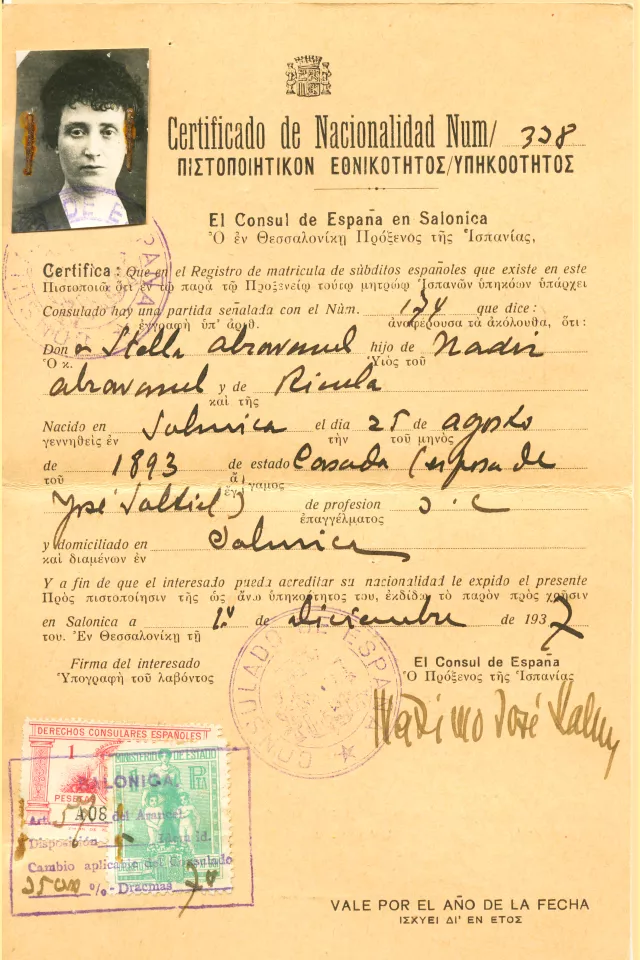 Certificado de Nacionalidad Num/ 338
ΠΙΣΤΟΠΟΙΗΤΙΚΟΝ ΕΘΝΙΚΟΤΗΤΟΣ/ΥΠΗΚΟΟΤΗΤΟΣ
El Consul de España en Salonica
Ὁ ἐν Θεσσαλονίκῃ Πρόξενος τῆς Ἱσπανίας,
Certifica: Que en el Registro de matricula de súbditos españoles que existe en este
Πιστοποιῶ ὅτι ἐν τῷ παρὰ τῷ Προξενείῳ τούτῳ μητρώῳ Ἱσπανῶν ὑπηκόων ὑπάρχει
Consulado hay una partida señalada con el Núm. 174 que dice:
ἐγγραφὴ ὑπ' ἀριθ. ἀναφέρουσα τὰ ἀκόλουθα, ὅτι:
Don a Stella Abravanel hijo de Nadir
Ὁ κ. Υἱὸς τοῦ
Abravanel y de Ricula
καὶ τῆς
Nacido en Salonica el dia 25 de agosto
γεννηθεὶς ἐν τὴν τοῦ μηνὸς
de 1893 de estado Casada (esposa de
τοῦ ἔγγαμος
José Saltiel) de profesion S. C
ἐπαγγέλματος
y domiciliado en Salonica
καὶ διαμένων ἐν
Y a fin de que el interesado pueda acreditar su nacionalidad le expido el presente
Πρὸς πιστοποίησιν τῆς ὡς ἄνω ὑπηκόοτητος του, ἐκδίδω τὸ παρὸν πρὸς χρῆσιν
en Salonica a 1º de diciembre de 1937
του. Ἐν Θεσσαλονίκῃ τῇ
Firma del interesado
Ὑπογραφὴ τοῦ λαβόντος
El Consul de España
Ὁ Πρόξενος τῆς Ἱσπανίας
CONSULADO DE ESPAÑA
Máximo José
DERECHOS CONSULARES ESPAÑOLES
1
PESETA
MINISTERIO DE ESTADO
1 PTA
SALONICA.
A08
Art. 57 del Arancel
Disposición id.
Cambio aplicable del Consulado
% - Dracmas 70
VALE POR EL AÑO DE LA FECHA
ΙΣΧΥΕΙ ΔΙ' ΕΝ ΕΤΟΣ